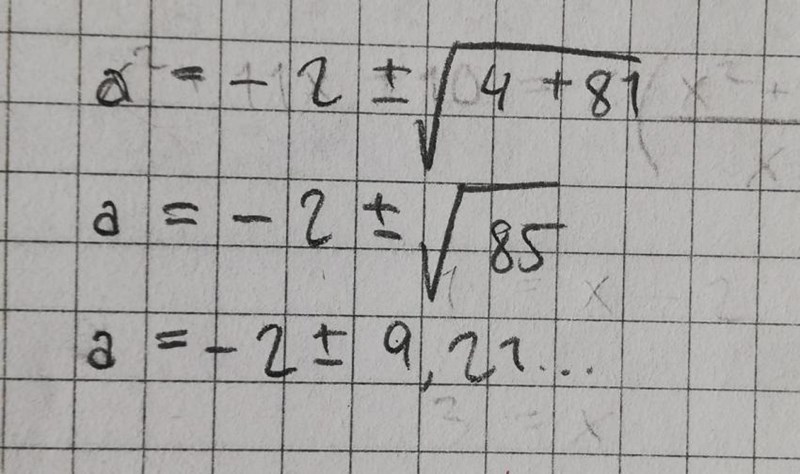 a² = - 2 ± √4 + 81
a = - 2 ± √85
a = - 2 ± 9,21...